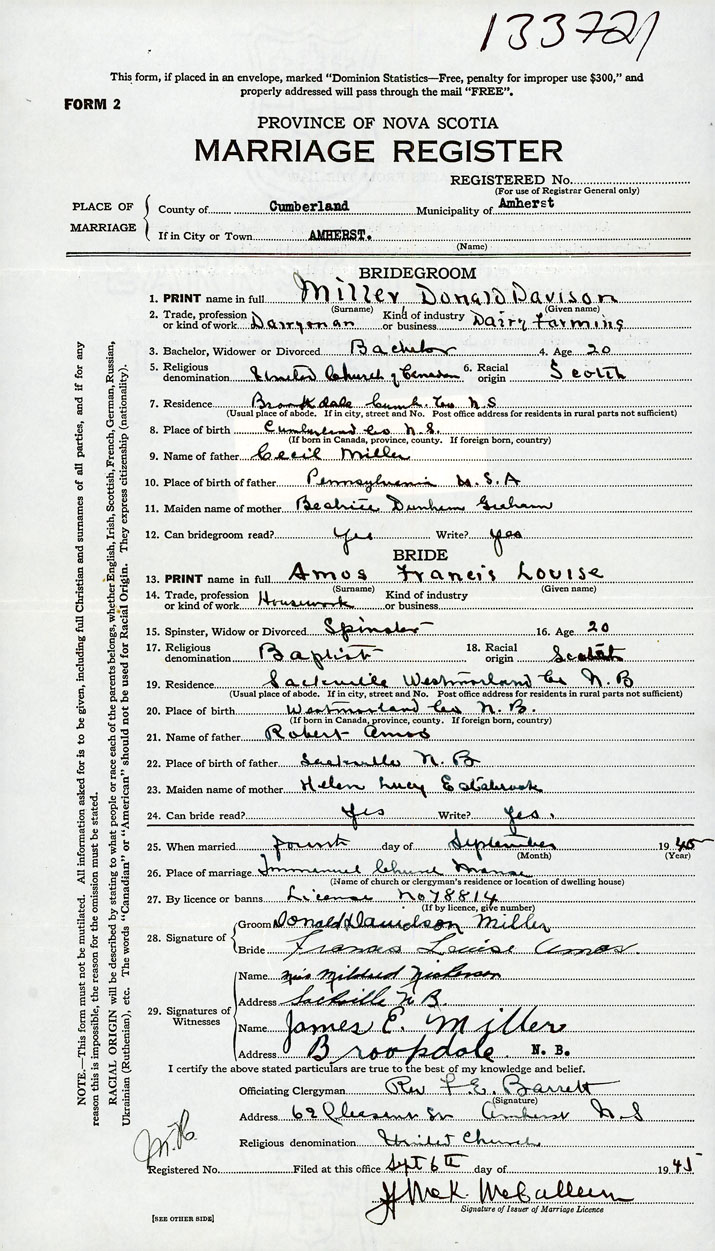 133721
This form, if placed in an envelope, marked “Dominion Statistics—Free, penalty for improper use $300,” and
properly addressed will pass through the mail “FREE”.
FORM 2
PROVINCE OF NOVA SCOTIA
MARRIAGE REGISTER
REGISTERED No.
(For use of Registrar General only)
PLACE OF MARRIAGE
County of Cumberland Municipality of Amherst
If in City or Town AMHERST.
(Name)
NOTE.—This form must not be mutilated. All information asked for is to be given, including full Christian and surnames of all parties, and if for any
reason this is impossible, the reason for the omission must be stated.
RACIAL ORIGIN will be described by stating to what people or race each of the parents belongs, whether English, Irish, Scottish, French, German, Russian,
Ukrainian (Ruthenian), etc. The words “Canadian” or “American” should not be used for Racial Origin. They express citizenship (nationality).
BRIDEGROOM
1. PRINT name in full Miller Donald Davison
(Surname) (Given name)
2. Trade, profession or kind of work Dairyman Kind of industry or business Dairy Farming
3. Bachelor, Widower or Divorced Bachelor 4. Age 20
5. Religious denomination United Church of Canada 6. Racial origin Scotch
7. Residence Brookdale Cumb. Co N.S
(Usual place of abode. If in city, street and No. Post office address for residents in rural parts not sufficient)
8. Place of birth Cumberland Co N.S.
(If born in Canada, province, county. If foreign born, country)
9. Name of father Cecil Miller
10. Place of birth of father Pennsylvania U.S.A
11. Maiden name of mother Beatrice Dunham Graham
12. Can bridegroom read? Yes Write? yes
BRIDE
13. PRINT name in full Amos Francis Louise
(Surname) (Given name)
14. Trade, profession or kind of work Housework Kind of industry or business
15. Spinster, Widow or Divorced Spinster 16. Age 20
17. Religious denomination Baptist 18. Racial origin Scotch
19. Residence Sackville Westmorland Co N.B
(Usual place of abode. If in city, street and No. Post office address for residents in rural parts not sufficient)
20. Place of birth Westmorland Co N.B.
(If born in Canada, province, county. If foreign born, country)
21. Name of father Robert Amos
22. Place of birth of father Sackville N.B
23. Maiden name of mother Helen Lucy Estabrook
24. Can bride read? Yes Write? Yes.
25. When married fourth day of September 1945
(Month) (Year)
26. Place of marriage Immanuel Church Manse
(Name of church or clergyman's residence or location of dwelling house)
27. By licence or banns License No 78814
(If by licence, give number)
28. Signature of
Groom Donald Davidson Miller
Bride Francis Louise Amos.
29. Signatures of Witnesses
Name Miss Mildred Nickerson
Address Sackville N.B.
Name James E. Miller
Address Broopdale N. B.
I certify the above stated particulars are true to the best of my knowledge and belief.
Officiating Clergyman Rev F. E. Barrett
(Signature)
Address 62 Pleasant St Amherst N.S
Religious denomination United Church
Registered No. Filed at this office Sept 6th day of 1945
J McK. McCallum
Signature of Issuer of Marriage Licence
[SEE OTHER SIDE]